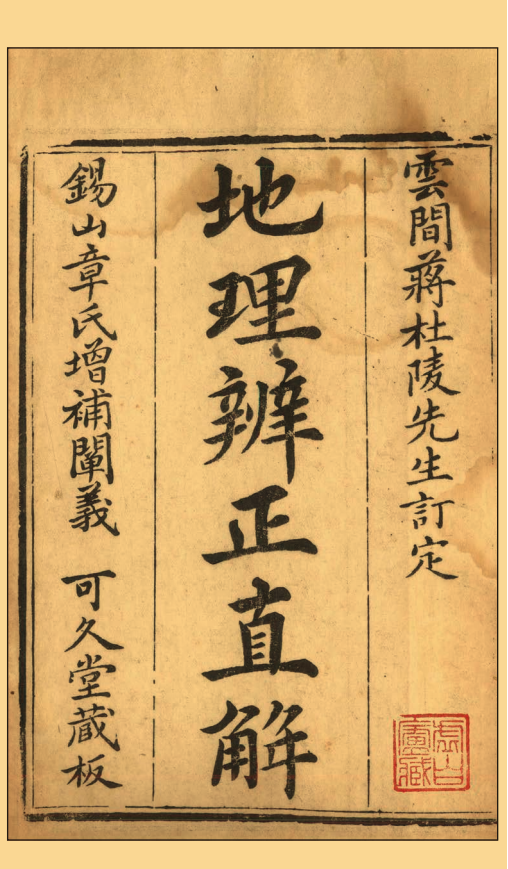 雲間蔣杜陵先生訂定
地理辨正直解
錫山章氏增補闡義 可久堂藏板